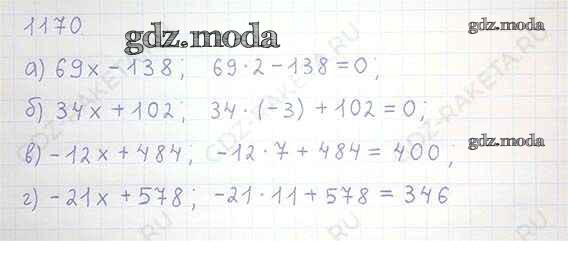 1170
gdz.moda
gdz.moda
а) 69x - 138; 69 · 2 - 138 = 0;
б) 34x + 102; 34 · (-3) + 102 = 0;
в) -12x + 484; -12 · 7 + 484 = 400;
gdz.moda
г) -21x + 578; -21 · 11 + 578 = 346
GDZ-RAKETA.RU
GDZ-RAKETA.RU